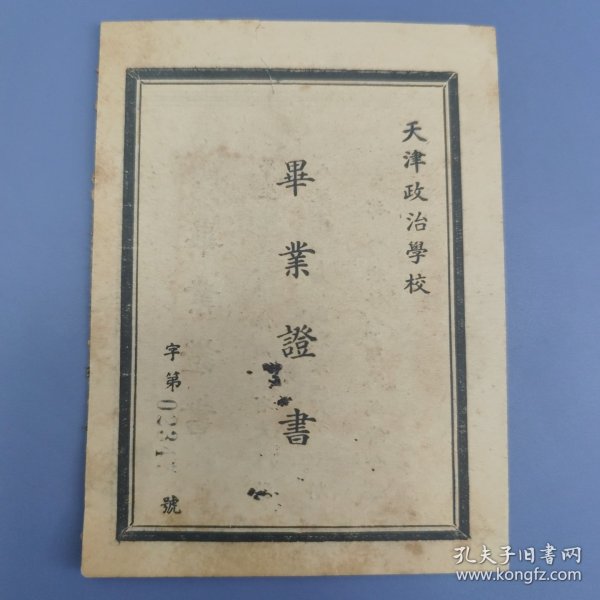 天津政治學校
畢業證書
字第0234號
孔夫子旧书网
www.kongfz.com